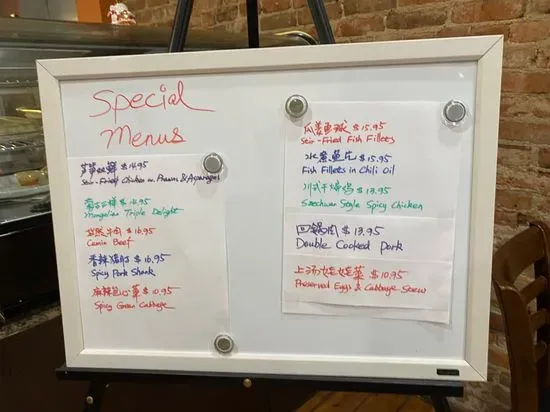 Special
Menus
$14.95
Stir-Fried Chicken w. Prawns & Asparagus
蒙古三鲜 $16.95
Mongolian Triple Delight
孜然牛肉 $16.95
Cumin Beef
香辣猪肘 $16.95
Spicy Pork Shank
麻辣包心菜 $10.95
Spicy Green Cabbage
$15.95
Stir-Fried Fish Fillets
水煮鱼片 $15.95
Fish Fillets in Chili Oil
川式干烧鸡 $13.95
Szechuan Style Spicy Chicken
回锅肉 $13.95
Double Cooked Pork
上汤娃娃菜 $10.95
Preserved Eggs & Cabbage Stew